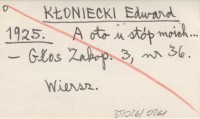 KŁONIECKI Edward
1925. A oto u stóp moich...
– Głos Zakop. 3, nr 36.
Wiersz.